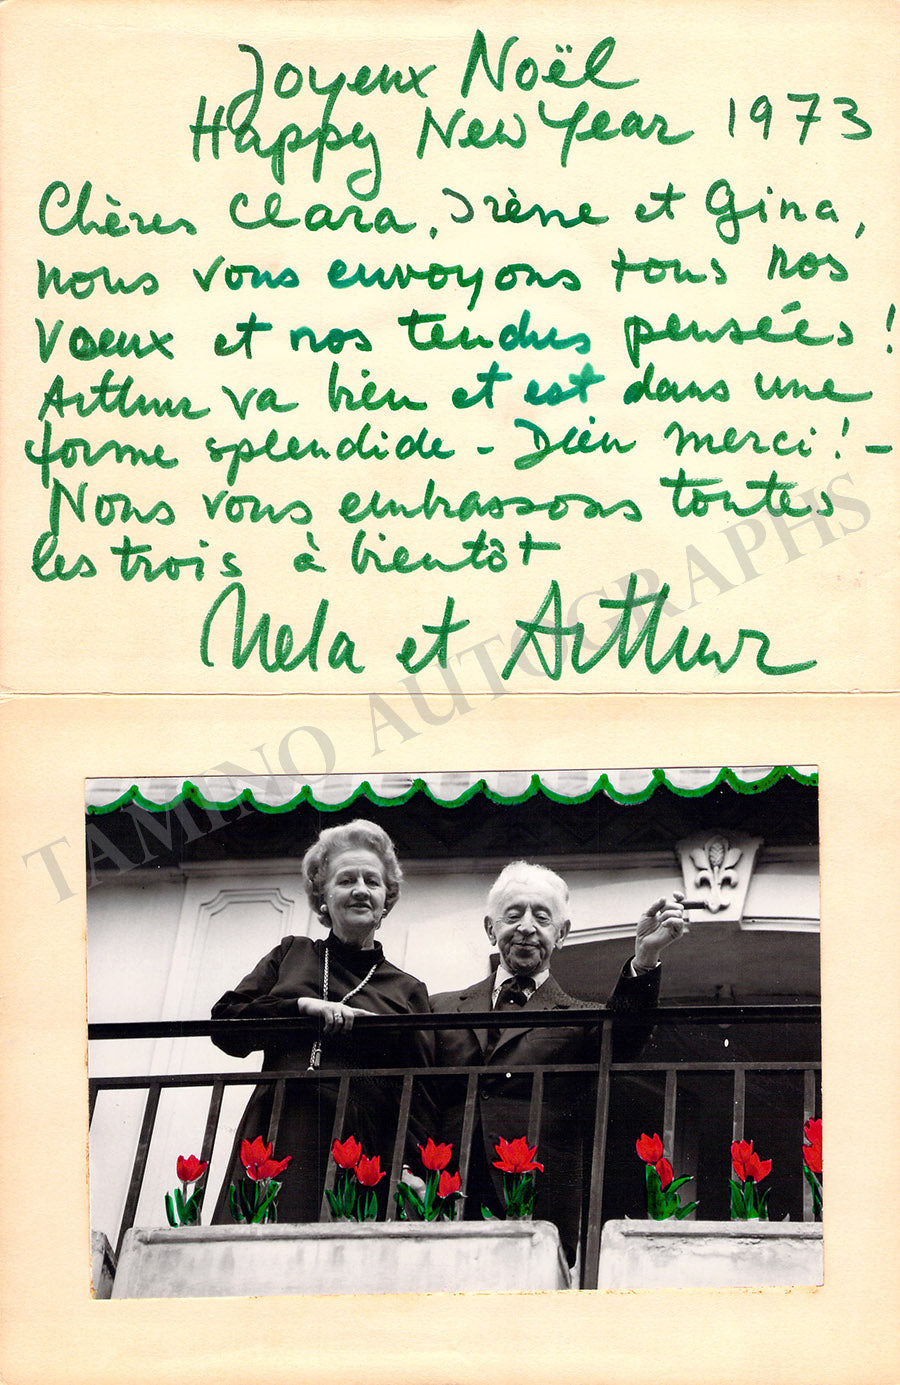 Joyeux Noël
Happy New Year 1973
Chères Clara, Irène et Gina,
nous vous envoyons tous nos
vœux et nos tendres pensées !
Arthur va bien et est dans une
forme splendide – Dieu merci ! –
Nous vous embrassons toutes
les trois à bientôt
Nela et Arthur
TAMINO AUTOGRAPHS